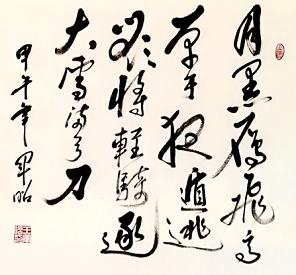 月黑雁飛高
單于夜遁逃
欲將輕騎逐
大雪滿弓刀
甲午年